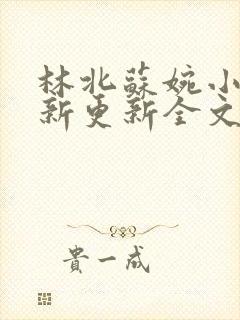 林北蘇婉小
新更新全文
貴一成